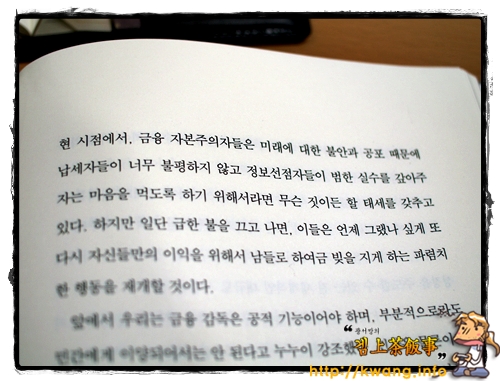 현 시점에서, 금융 자본주의자들은 미래에 대한 불안과 공포 때문에
납세자들이 너무 불평하지 않고 정보선점자들이 범한 실수를 갚아주
자는 마음을 먹도록 하기 위해서라면 무슨 짓이든 할 태세를 갖추고
있다. 하지만 일단 급한 불을 끄고 나면, 이들은 언제 그랬나 싶게 또
다시 자신들만의 이익을 위해서 남들로 하여금 빚을 지게 하는 파렴치
한 행동을 재개할 것이다.
앞에서 우리는 금융 감독은 공적 기능이어야 하며, 부분적으로라도
민간에게 이양되어서는 안 된다고 누누이 강조했
광서방의
밥上茶飯事
http://kwang.info